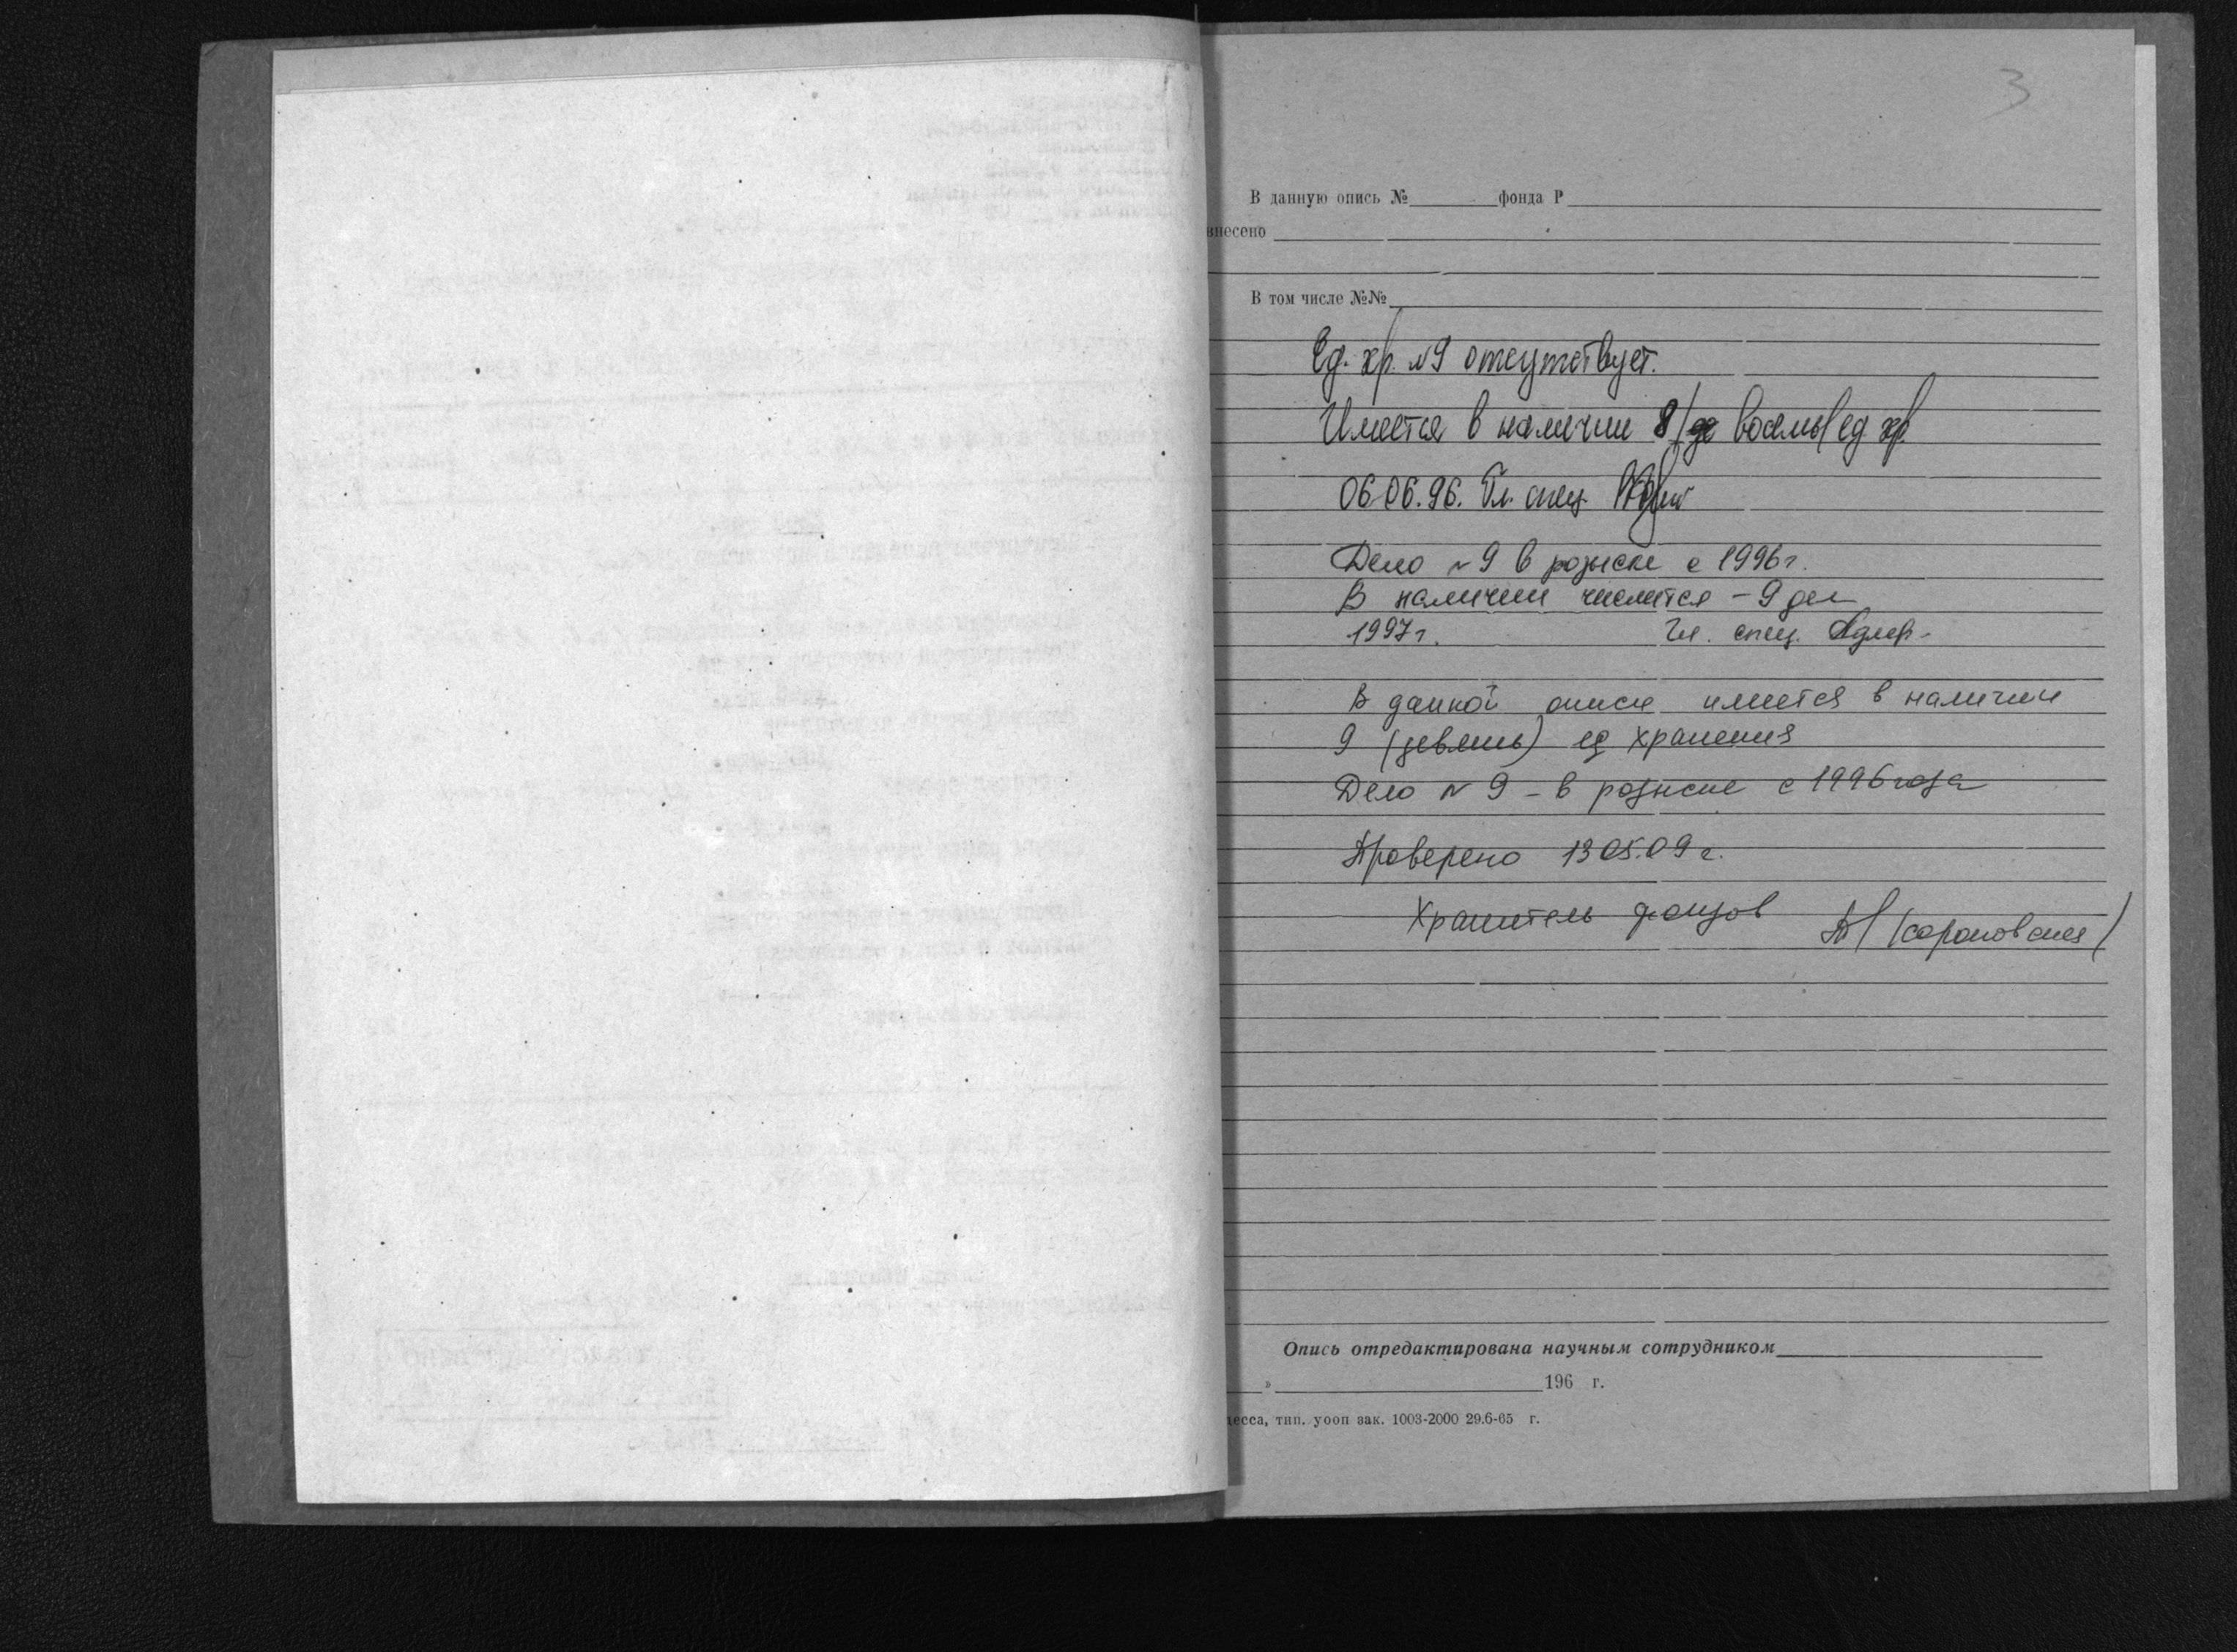 3
В данную опись № фонда Р
внесено
В том числе №№
Ед. хр. №9 отсутствует.
Имеется в наличии 8 (восемь) ед. хр.
06.06.96. Гл. спец.
Дело №9 в розыске с 1996 г.
В наличии числится – 9 дел
1997 г. Гл. спец. Адлер
В данной описи имеется в наличии
9 (девять) ед хранения
Дело № 9 – в розыске с 1996 года
Проверено 13 05.09 г.
Хранитель фондов
Опись отредактирована научным сотрудником
» 196 г.
есса, тип. уооп зак. 1003-2000 29.6-65 г.